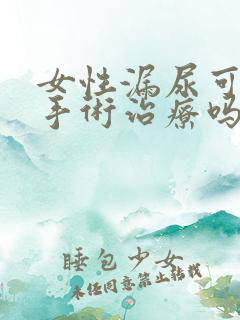 女性漏尿可
手術治療吗
睡包少女
未经同意禁止转载